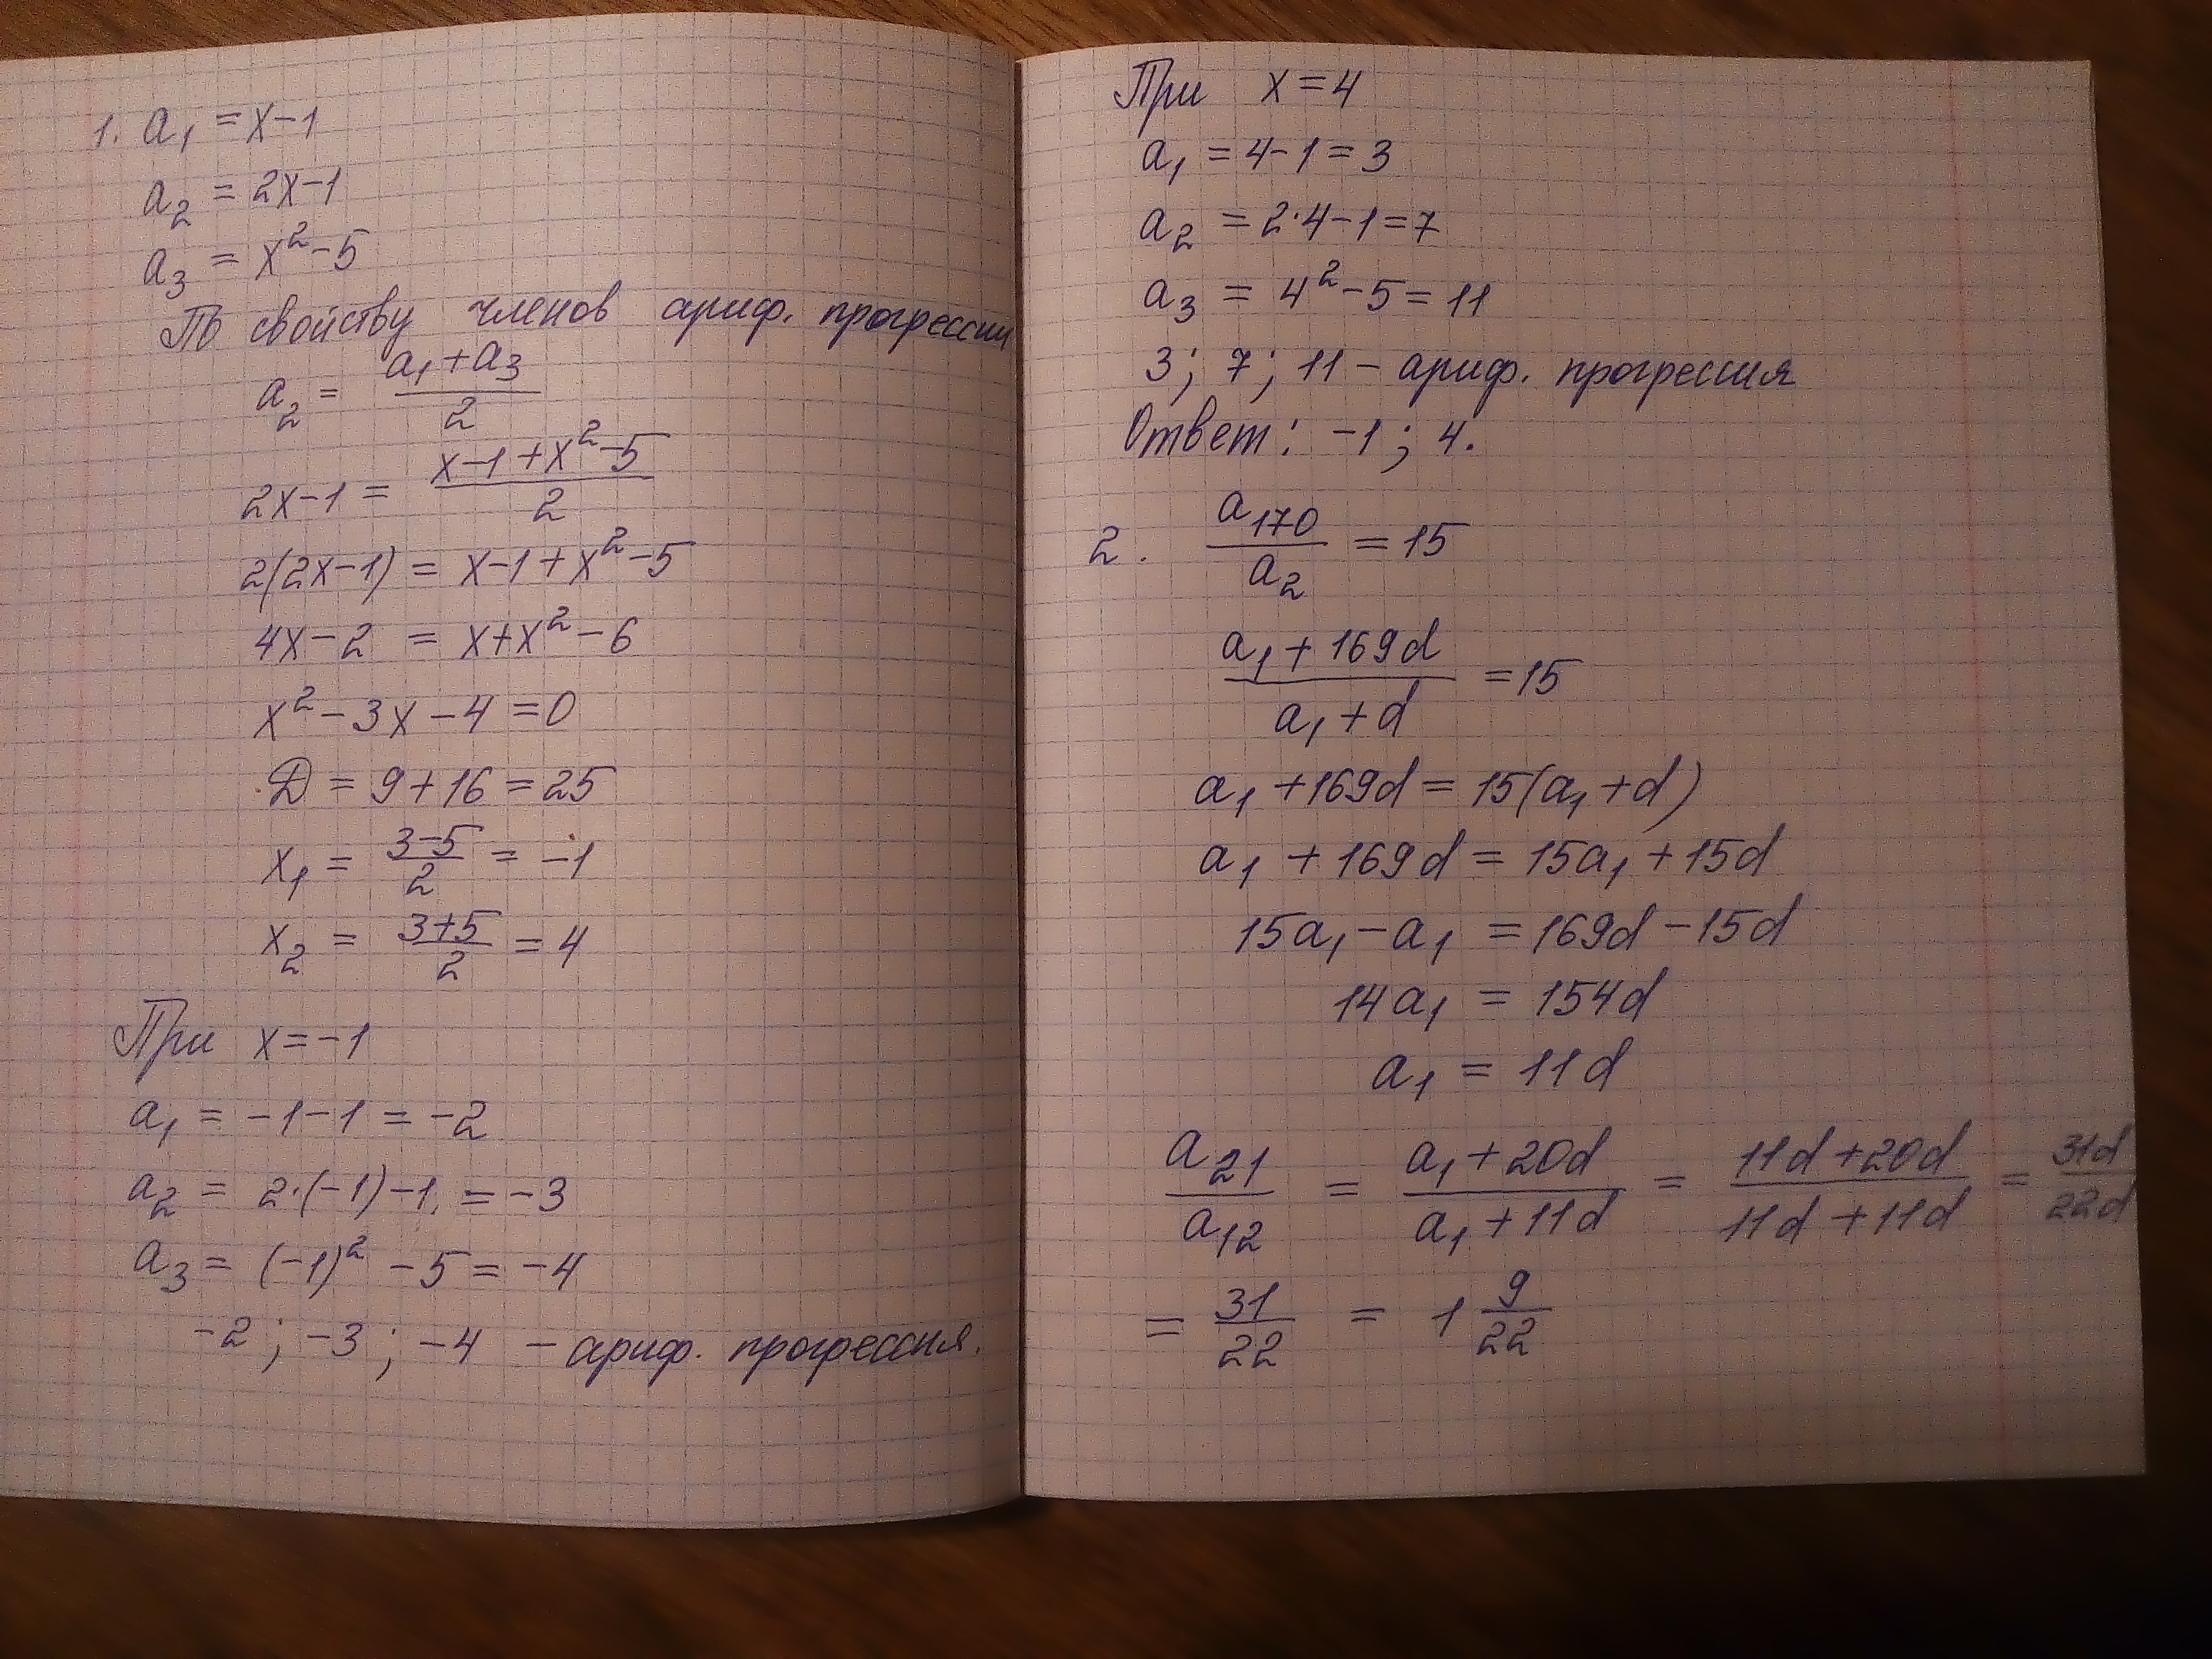 1. a₁ = x-1
a₂ = 2x-1
a₃ = x²-5
По свойству членов ариф. прогрессии
a₂ = (a₁+a₃)/2
2x-1 = (x-1+x²-5)/2
2(2x-1) = x-1+x²-5
4x-2 = x+x²-6
x²-3x-4=0
D = 9+16=25
x₁ = (3-5)/2 = -1
x₂ = (3+5)/2 = 4
При x=-1
a₁ = -1-1 = -2
a₂ = 2·(-1)-1 = -3
a₃ = (-1)²-5 = -4
-2; -3; -4 - ариф. прогрессия.
При x=4
a₁ = 4-1 = 3
a₂ = 2·4-1=7
a₃ = 4²-5=11
3; 7; 11 - ариф. прогрессия
Ответ: -1; 4.
2. a₁₇₀/a₂ = 15
(a₁+169d)/(a₁+d) = 15
a₁+169d = 15(a₁+d)
a₁+169d = 15a₁+15d
15a₁-a₁ = 169d-15d
14a₁ = 154d
a₁ = 11d
a₂₁/a₁₂ = (a₁+20d)/(a₁+11d) = (11d+20d)/(11d+11d) = 31d/22d
= 31/22 = 1 9/22